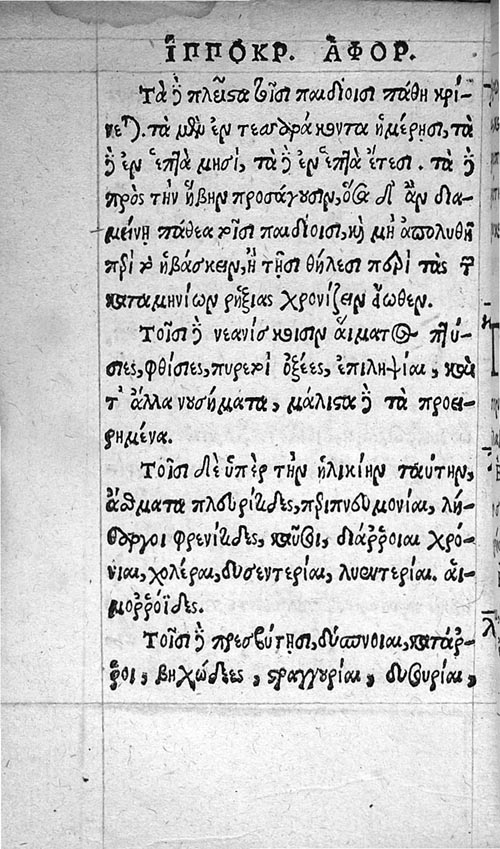 ἹΠΠΟΚΡ. ἈΦΟΡ.
Τὰ δὲ πλεῖστα τοῖσι παιδίοισι πάθη κρί-
νεται. τὰ μὲν ἐν τεσσαράκοντα ἡμέρῃσι, τὰ
δὲ ἐν ἑπτὰ μησὶ, τὰ δὲ ἐν ἑπτὰ ἔτεσι. τὰ δὲ
πρὸς τὴν ἥβην προσάγουσιν, ὅσα δ' ἂν δια-
μείνῃ πάθεα τοῖσι παιδίοισι, καὶ μὴ ἀπολυθῇ
περὶ τὸ ἡβάσκειν, ἢ τῇσι θήλεσι περὶ τὰς τῶν
καταμηνίων ῥήξιας χρονίζειν εἴωθεν.
Τοῖσι δὲ νεανίσκοισιν αἵματος πτύ-
σιες, φθίσιες, πυρετοὶ ὀξέες, ἐπιληψίαι, καὶ
τ' ἄλλα νουσήματα, μάλιστα δὲ τὰ προει-
ρημένα.
Τοῖσι δὲ ὑπὲρ τὴν ἡλικίην ταύτην,
ἄσθματα πλευρίτιδες, περιπνευμονίαι, λή-
θαργοι φρενίτιδες, καῦσοι, διάῤῥοιαι χρό-
νιαι, χολέραι, δυσεντερίαι, λυεντερίαι. αἱ-
μοῤῥοΐδες.
Τοῖσι δὲ πρεσβύτῃσι, δύσπνοιαι, κατάῤ-
ῥοι, βηχώδεες, στραγγουρίαι, δυσουρίαι,